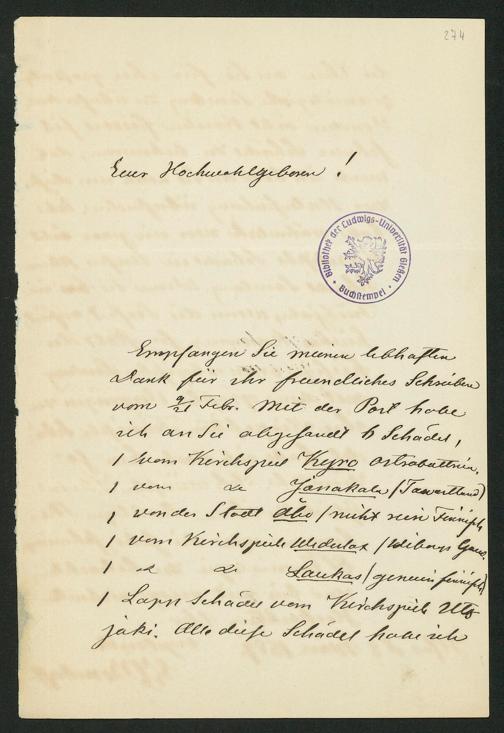 274
Euer Hochwohlgeboren!
Bibliothek der Ludwigs-Universität Gießen
Buchstempel
Empfangen Sie meinen lebhaften
Dank für ihr freundliches Schreiben
vom 9/21 Febr. Mit der Post habe
ich an Sie abgesandt 6 Schädel,
1 vom Kirchspiel Kyro
1 vom do Janakala (Tawastland)
1 von der Stadt Åbo (nicht rein Finnisch
1 vom Kirchspiele (Wiborgs Gouv.
1 do do Laukas (genuin finnisch)
1 Lapp Schädel vom Kirchspiele Uts
joki. Alle diese Schädel habe ich